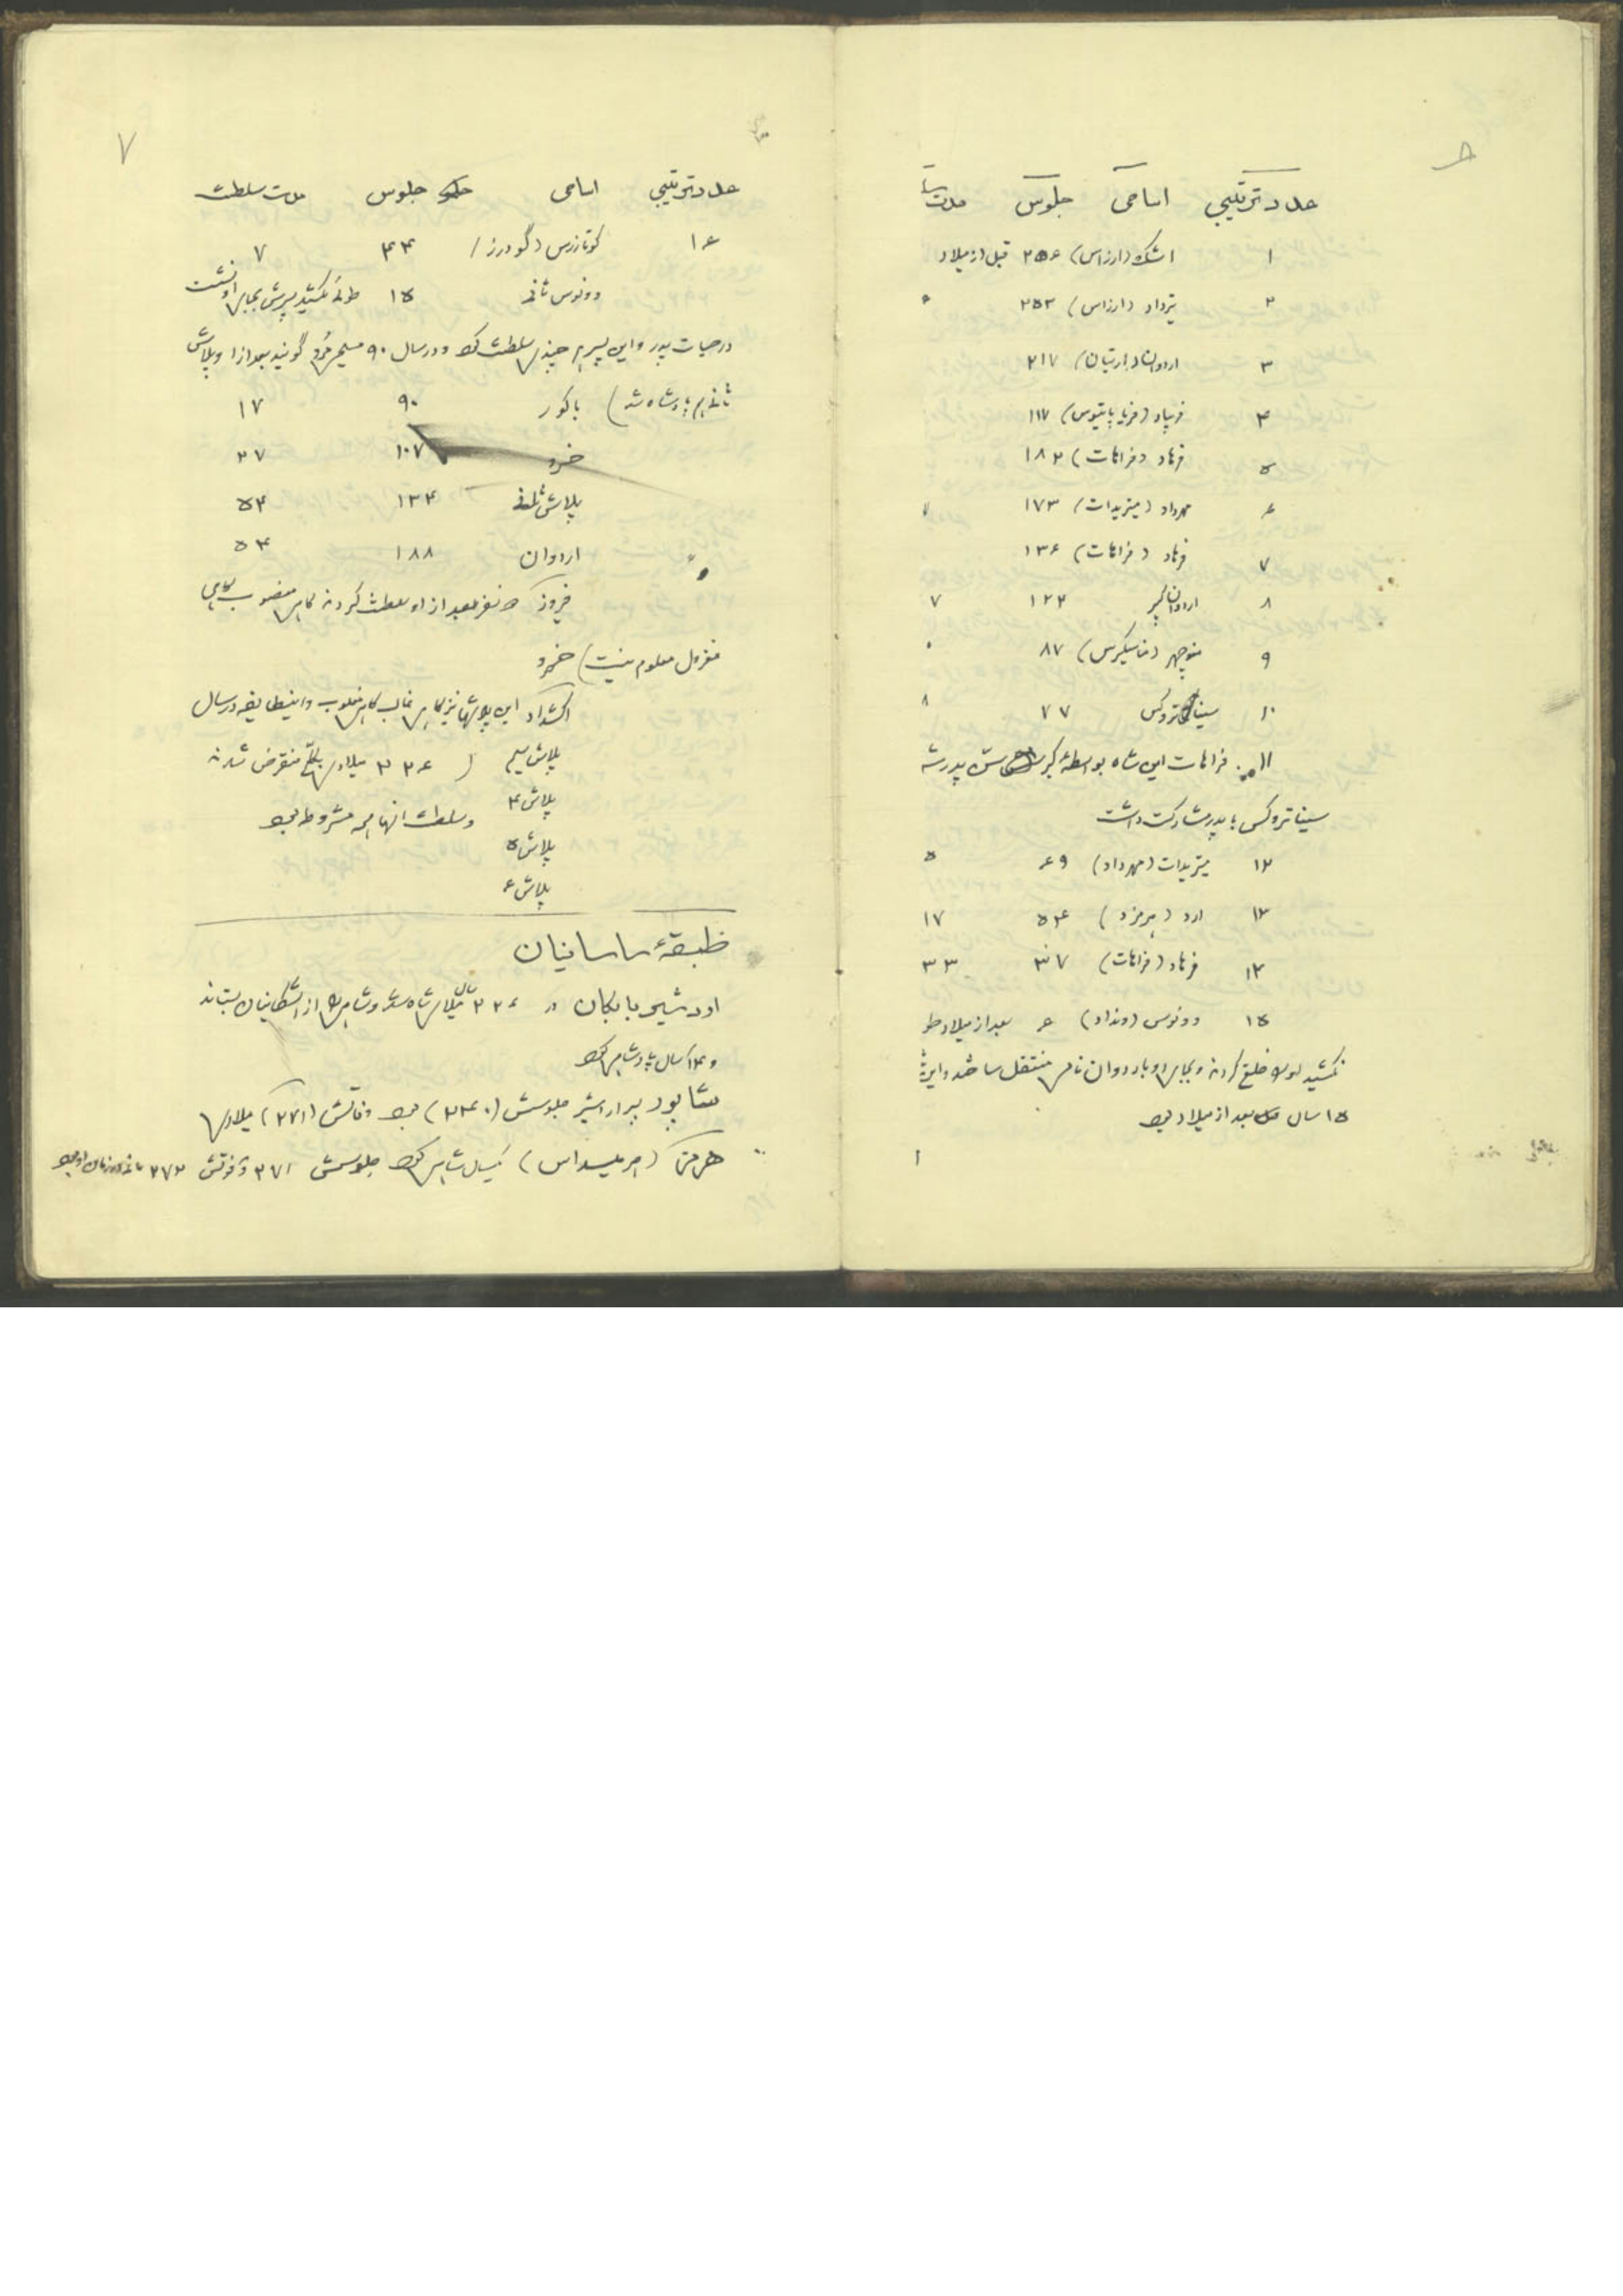 عدد ترتیبی اسامی جلوس مدت
۱ اشک (ارزاس) ۲۵۶ قبل از میلاد
۲ تیرداد (ارزاس) ۲۵۳
۳ اردوان (ارتبان) ۲۱۷
۴ فریاپاد (فریاپاتیوس) ۱۱۷
۵ فرهاد (فراهات) ۱۸۲
۶ مهرداد (میتریدات) ۱۷۳
۷ فرهاد (فراهات) ۱۳۶
۸ اردوان ۱۲۲ ۷
۹ منوچهر (مناسکیرس) ۸۷
۱۰ سیناتروکس ۷۷ ۸
۱۱ فراهات این شاه بواسطهٔ کبر سن پدرش
سیناتروکس با پدر مشارکت داشت
۱۲ میتریدات (مهرداد) ۶۹ ۵
۱۳ ارد (هرمزد) ۵۴ ۱۷
۱۴ فرهاد (فراهات) ۳۷ ۳۳
۱۵ وونوس (ونداد) ۶ بعد از میلاد طو
نکشید او را خلع کردند و بجای او باردوان نامی منتقل ساختند و این
۱۵ سال بعد از میلاد بود
۷
عدد ترتیبی اسامی جلوس مدت سلطنت
۱۶ کوتارزس (گودرز) ۴۴ ۷
وونوس ثانی ۱۵ طولی نکشید پسرش بجای او نشست
در حیات پدر و این پسر هم چندی سلطنت کرد و در سال ۹۰ مسیحی مرد گویند بعد از او پلاش
ثانی هم پادشاه شد) پاکور ۹۰ ۱۷
خسرو ۱۰۷ ۲۷
پلاش ۱۳۴ ۵۴
اردوان ۱۸۸ ۵۴
فیروز ۵ نفر بعد از او سلطنت کردند گاهی منصوب گاهی
معزول معلوم نیست) خسرو
اکشداد این پلاشها نیز گاهی غالب گاهی مغلوب و اینطایفه در سال
پلاش سیم ( ۲۲۶ میلادی بکلی منقرض شدند
پلاش ۴ و سلطنت آنها همه مشروطه بود
پلاش ۵
پلاش ۶
طبقهٔ ساسانیان
اردشیر بابکان در ۲۲۶ میلادی شاه شد و شاهی را از اشکانیان بستاند
و ۱۴ سال پادشاهی کرد
شاپور پسر اردشیر جلوسش (۲۴۰) بود وفاتش (۲۷۱) میلادی
هرمز (هرمیسداس) یکسال شاهی کرد جلوسش ۲۷۱ و فوتش ۲۷۲ مانی در زمان او بود